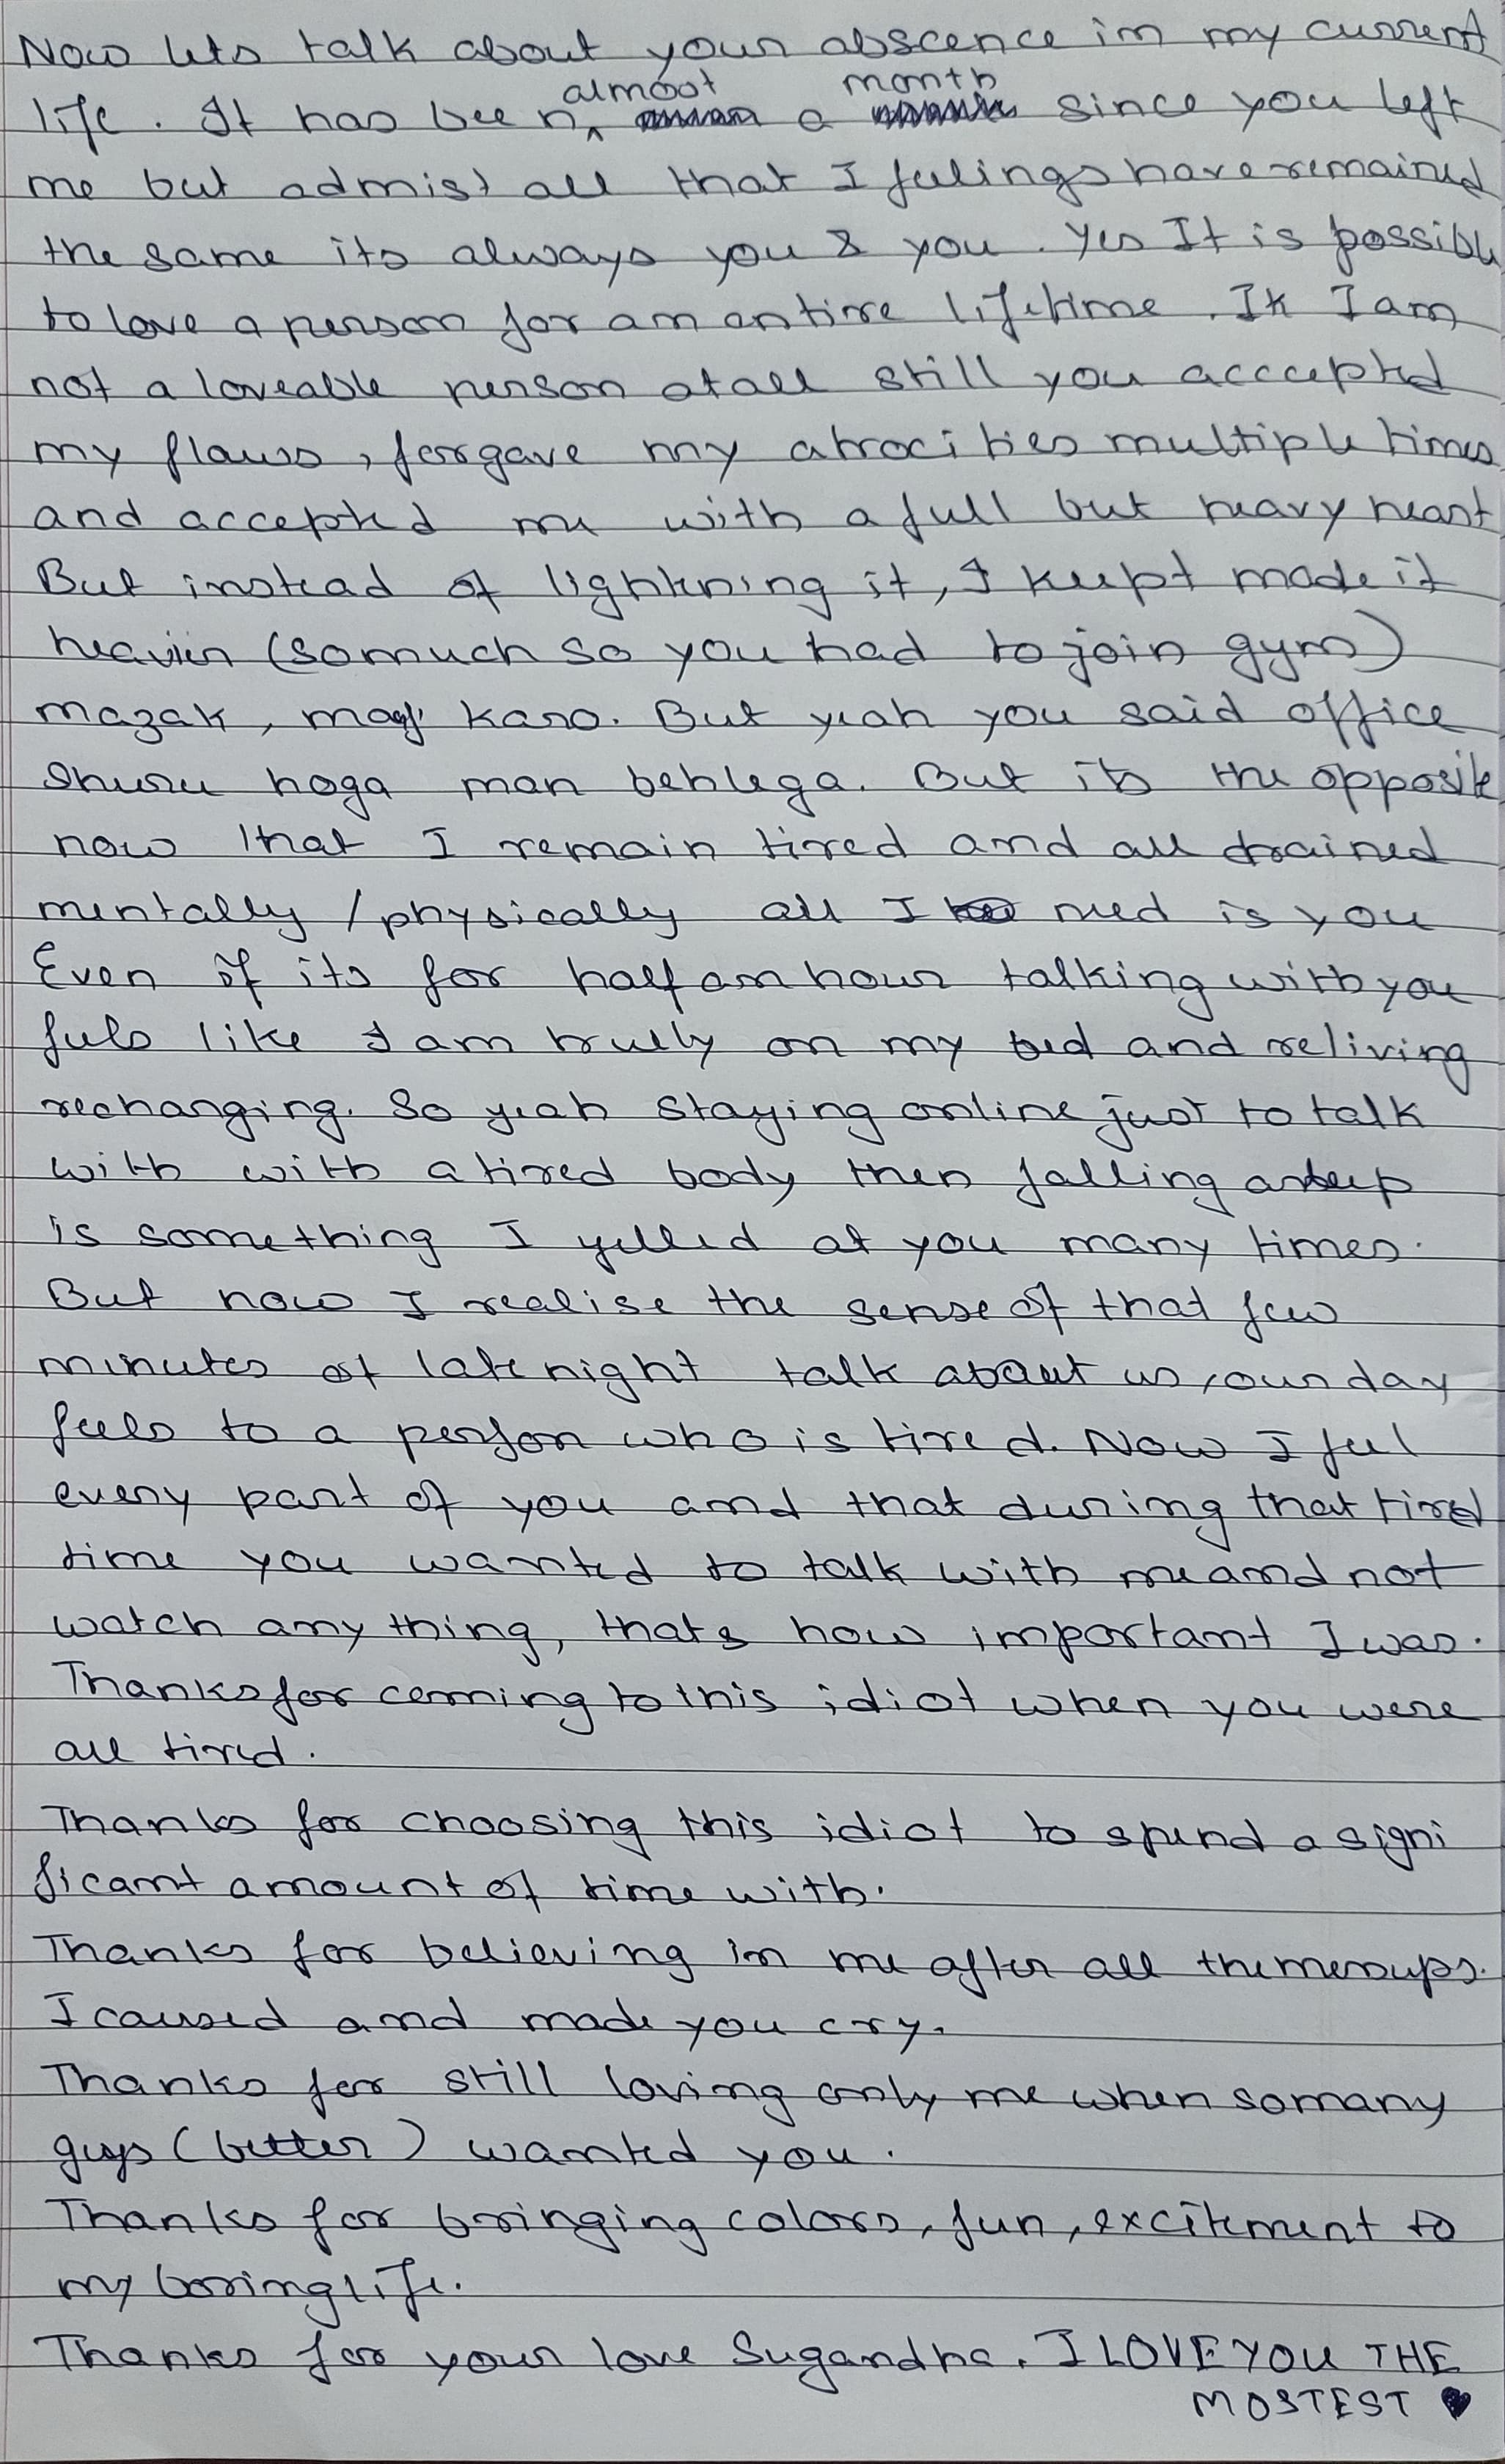 Now lets talk about your abscence in my current
life. It has been almost a month since you left
me but admist all that I feelings have remained
the same its always you & you. Yes It is possible
to love a person for an entire lifetime. Ik I am
not a loveable person at all still you acccepted
my flaws, forgave my atrocities multiple times
and accepted me with a full but heavy heart
But instead of lightning it, I keept made it
heavier (so much so you had to join gym)
mazak, karo. But yeah you said office
shuru hoga man behlega. But its the opposite
now that I remain tired and all drained
mentally / physically all I need is you
Even if its for half an hour talking with you
feels like I am truely on my bed and reliving
recharging. So yeah staying online just to talk
with with a tired body then falling asleep
is something I yelled at you many times.
But now I realise the sense of that few
minutes of late night talk about us, our day
feels to a person who is tired. Now I feel
every part of you and that during that tired
time you wanted to talk with me and not
watch anything, thats how important I was.
Thanks for coming to this idiot when you were
all tired.
Thanks for choosing this idiot to spend a signi
ficant amount of time with.
Thanks for believing in me after all the messups.
I caused and made you cry.
Thanks for still loving only me when so many
guys (better) wanted you.
Thanks for bringing colors, fun, excitement to
my boring life.
Thanks for your love Sugandha. I LOVE YOU THE
MOSTEST ♥